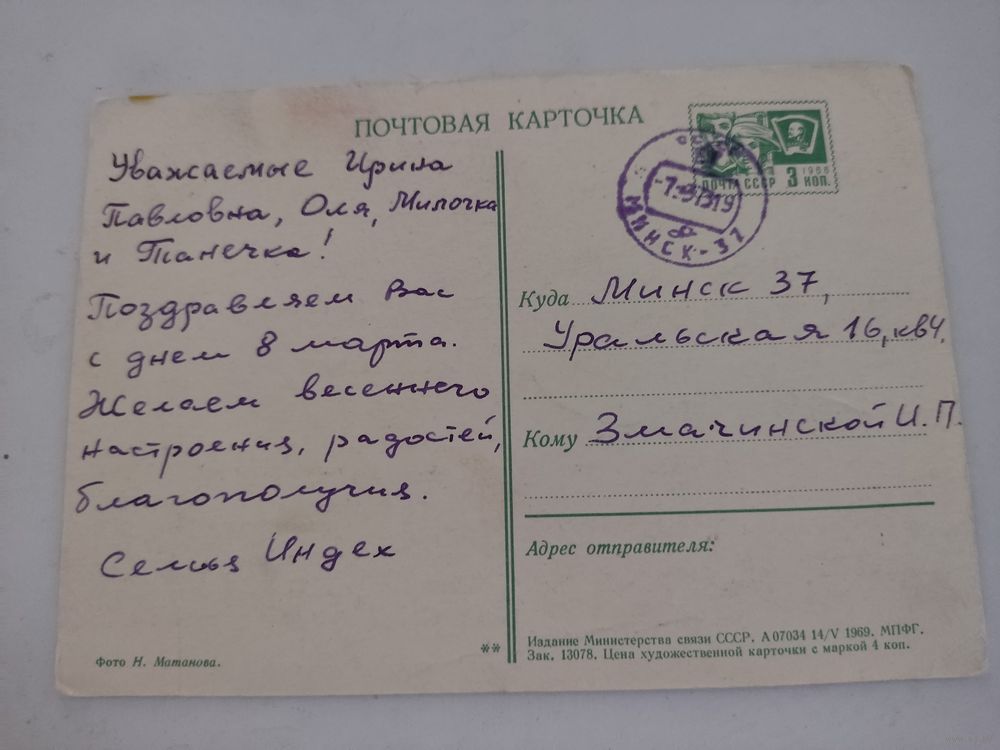 ПОЧТОВАЯ КАРТОЧКА
Уважаемые Ирина
Павловна, Оля, Милочка
и Танечка!
Поздравляем Вас
с днем 8 марта.
Желаем весеннего
настроения, радостей,
благополучия.
Семья Индех
Фото Н. Матанова.
**
1966
ПОЧТА СССР 3 КОП.
МИНСК-37
Куда Минск 37,
Уральская 16, кв 4.
Кому Змачинской И. П.
Адрес отправителя:
Издание Министерства связи СССР. А 07034 14/V 1969. МПФГ.
Зак. 13078. Цена художественной карточки с маркой 4 коп.